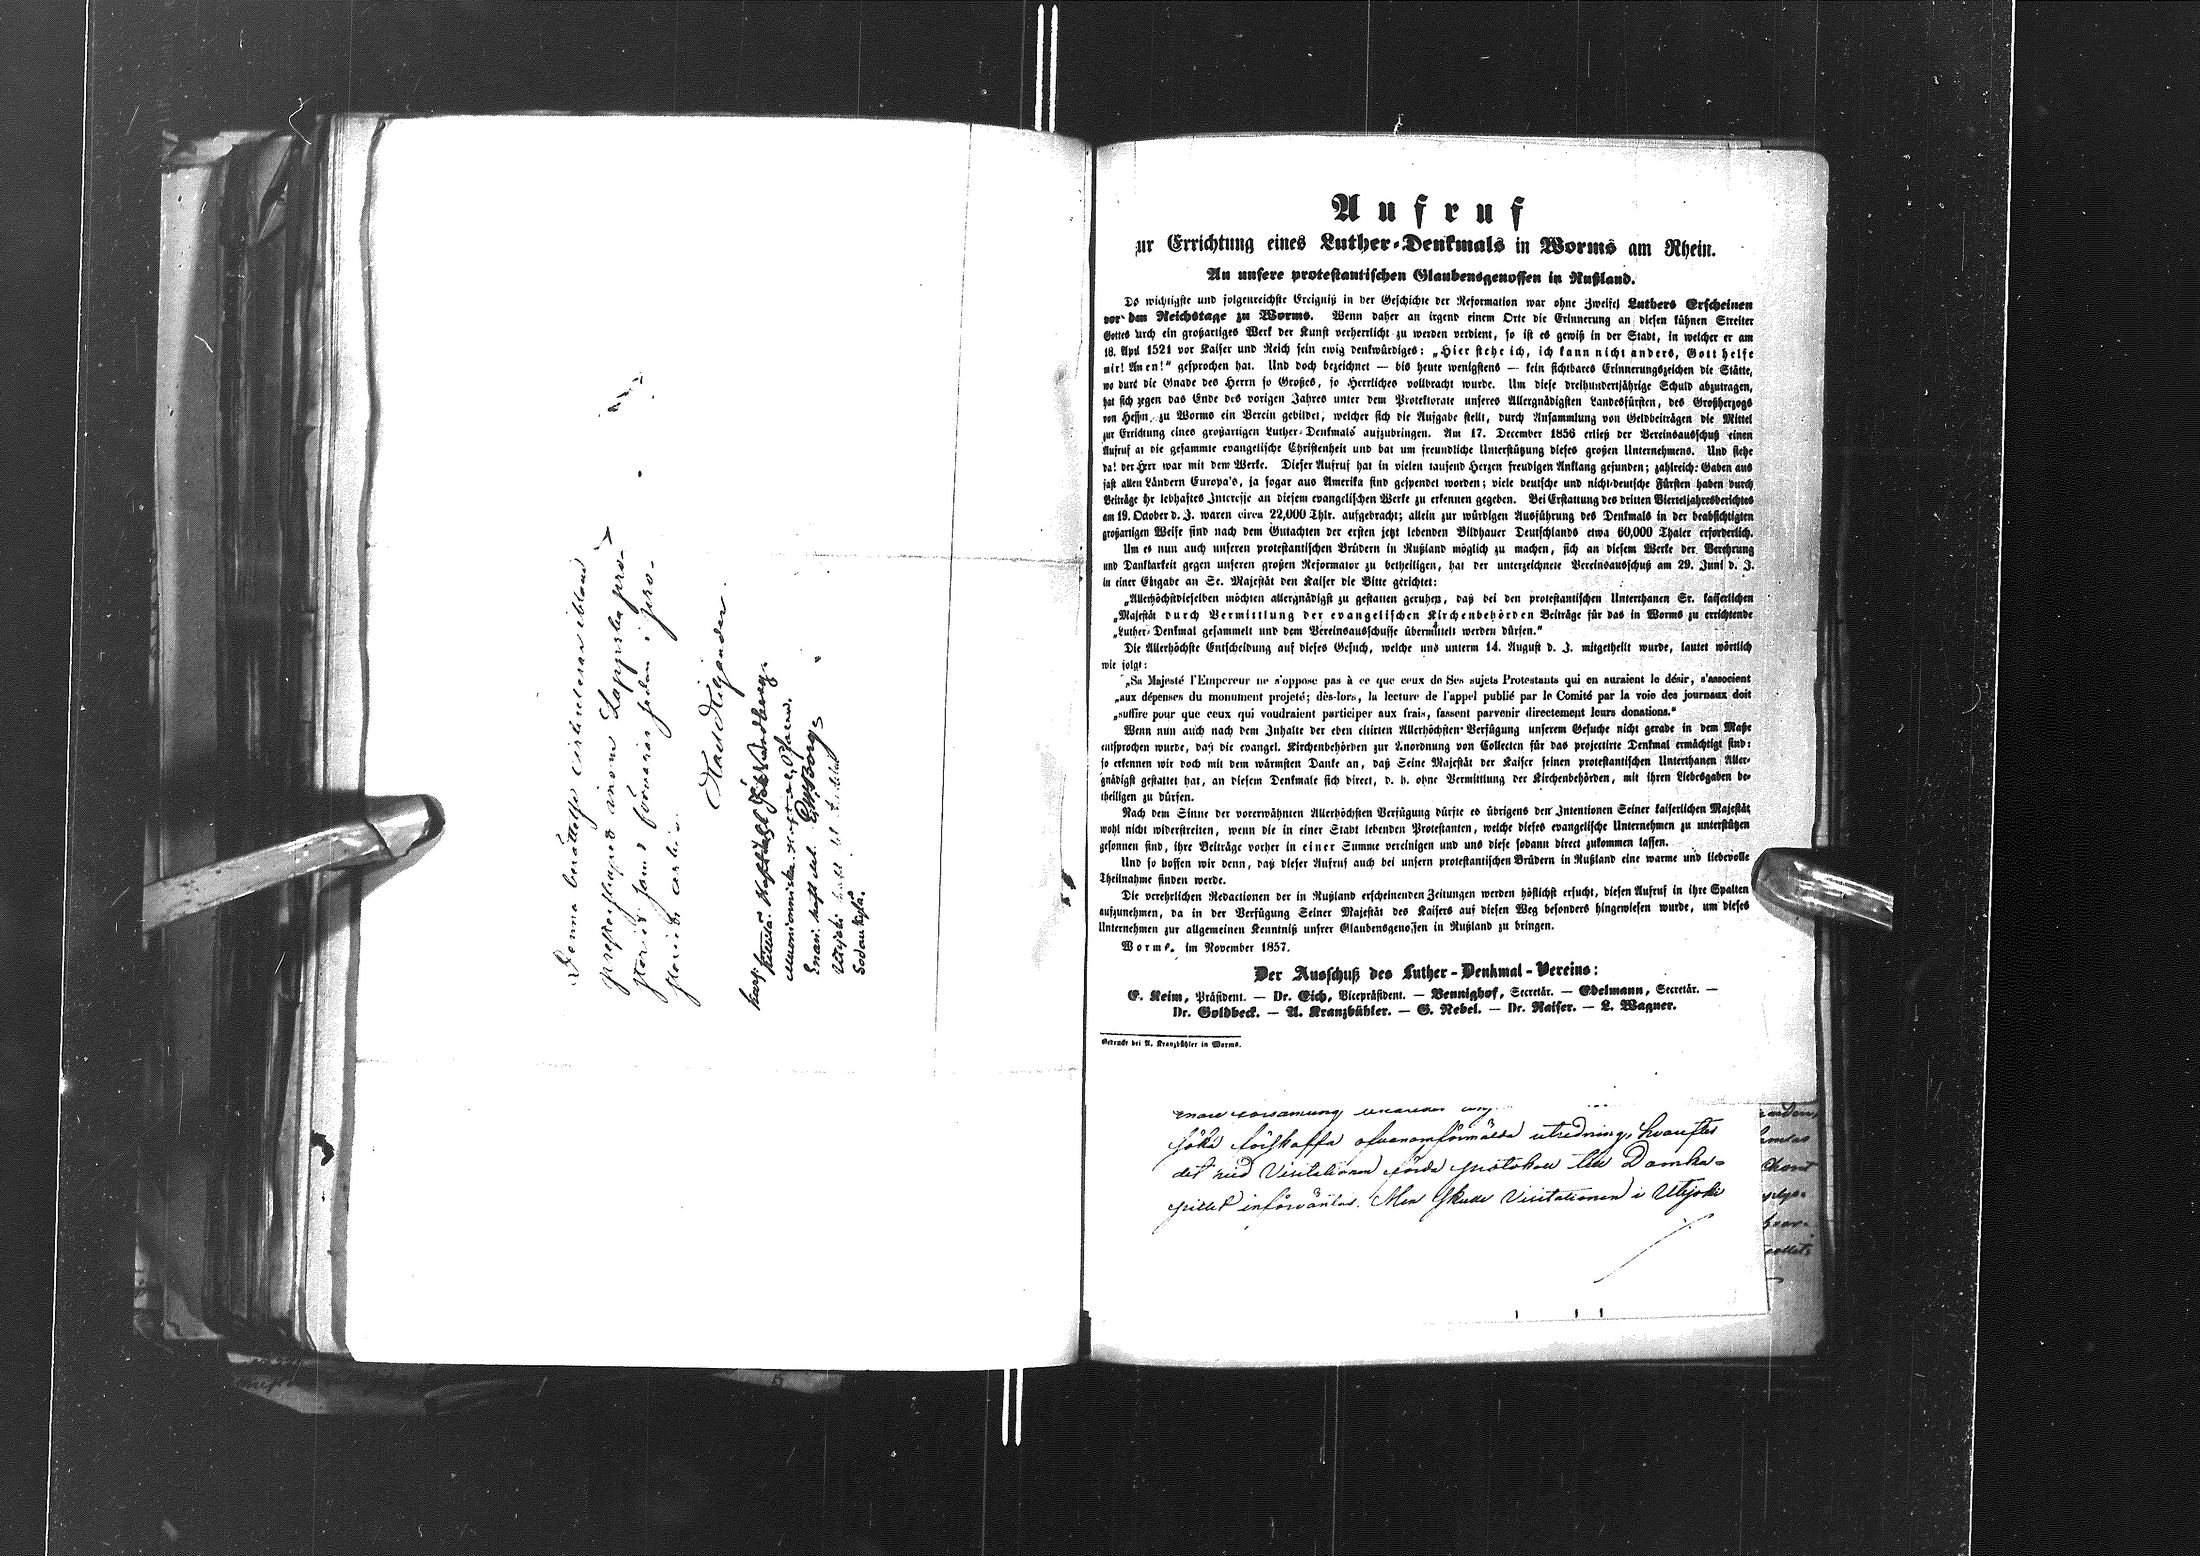 Denna berättelse cirkulerar ibland
presterskapet inom Lappska pro-
steriet samt förvaras sedan i pro-
steriets arkiv.
Kittilä.
Muonionniska.
Enari.
Utsjoki
Sodankylä.
Aufruf
zur Errichtung eines Luther-Denkmals in Worms am Rhein.
An unsere protestantischen Glaubensgenossen in Rußland.
Das wichtigste und folgenreichste Ereigniß in der Geschichte der Reformation war ohne Zweifel Luthers Erscheinen
vor dem Reichstage zu Worms. Wenn daher an irgend einem Orte die Erinnerung an diesen kühnen Streiter
Gottes durch ein großartiges Werk der Kunst verherrlicht zu werden verdient, so ist es gewiß in der Stadt, in welcher er am
18. April 1521 vor Kaiser und Reich sein ewig denkwürdiges: „Hier stehe ich, ich kann nicht anders, Gott helfe
mir! Amen!“ gesprochen hat. Und doch bezeichnet — bis heute wenigstens — kein sichtbares Erinnerungszeichen die Stätte,
wo durch die Gnade des Herrn so Großes, so Herrliches vollbracht wurde. Um diese dreihundertjährige Schuld abzutragen,
hat sich gegen das Ende des vorigen Jahres unter dem Protektorate unseres Allergnädigsten Landesfürsten, des Großherzogs
von Hessen, zu Worms ein Verein gebildet, welcher sich die Aufgabe stellt, durch Ansammlung von Geldbeiträgen die Mittel
zur Errichtung eines großartigen Luther-Denkmals aufzubringen. Am 17. December 1856 erließ der Vereinsausschuß einen
Aufruf an die gesammte evangelische Christenheit und bat um freundliche Unterstützung dieses großen Unternehmens. Und siehe
da! der Herr war mit dem Werke. Dieser Aufruf hat in vielen tausend Herzen freudigen Anklang gefunden; zahlreiche Gaben aus
fast allen Ländern Europa's, ja sogar aus Amerika sind gespendet worden; viele deutsche und nicht-deutsche Fürsten haben durch
Beiträge ihr lebhaftes Interesse an diesem evangelischen Werke zu erkennen gegeben. Bei Erstattung des dritten Vierteljahresberichtes
am 19. October d. J. waren circa 22,000 Thlr. aufgebracht; allein zur würdigen Ausführung des Denkmals in der beabsichtigten
großartigen Weise sind nach dem Gutachten der ersten jetzt lebenden Bildhauer Deutschlands etwa 60,000 Thaler erforderlich.
Um es nun auch unseren protestantischen Brüdern in Rußland möglich zu machen, sich an diesem Werke der Verehrung
und Dankbarkeit gegen unseren großen Reformator zu betheiligen, hat der unterzeichnete Vereinsausschuß am 29. Juni d. J.
in einer Eingabe an Se. Majestät den Kaiser die Bitte gerichtet:
„Allerhöchstdieselben möchten allergnädigst zu gestatten geruhen, daß bei den protestantischen Unterthanen Sr. kaiserlichen
„Majestät durch Vermittlung der evangelischen Kirchenbehörden Beiträge für das in Worms zu errichtende
„Luther-Denkmal gesammelt und dem Vereinsausschusse übermittelt werden dürfen.“
Die Allerhöchste Entscheidung auf dieses Gesuch, welche uns unterm 14. August d. J. mitgetheilt wurde, lautet wörtlich
wie folgt:
„Sa Majesté l'Empereur ne s'oppose pas à ce que ceux de Ses sujets Protestants qui en auraient le désir, s'associent
„aux dépenses du monument projeté; dès-lors, la lecture de l'appel publié par le Comité par la voie des journaux doit
„suffire pour que ceux qui voudraient participer aux frais, fassent parvenir directement leurs donations.“
Wenn nun auch nach dem Inhalte der eben citirten Allerhöchsten Verfügung unserem Gesuche nicht gerade in dem Maße
entsprochen wurde, daß die evangel. Kirchenbehörden zur Anordnung von Collecten für das projectirte Denkmal ermächtigt sind:
so erkennen wir doch mit dem wärmsten Danke an, daß Seine Majestät der Kaiser seinen protestantischen Unterthanen Aller-
gnädigst gestattet hat, an diesem Denkmale sich direct, d. h. ohne Vermittlung der Kirchenbehörden, mit ihren Liebesgaben be-
theiligen zu dürfen.
Nach dem Sinne der vorerwähnten Allerhöchsten Verfügung dürfte es übrigens den Intentionen Seiner kaiserlichen Majestät
wohl nicht widerstreiten, wenn die in einer Stadt lebenden Protestanten, welche dieses evangelische Unternehmen zu unterstützen
gesonnen sind, ihre Beiträge vorher in einer Summe vereinigen und uns diese sodann direct zukommen lassen.
Und so hoffen wir denn, daß dieser Aufruf auch bei unsern protestantischen Brüdern in Rußland eine warme und liebevolle
Theilnahme finden werde.
Die verehrlichen Redactionen der in Rußland erscheinenden Zeitungen werden höflichst ersucht, diesen Aufruf in ihre Spalten
aufzunehmen, da in der Verfügung Seiner Majestät des Kaisers auf diesen Weg besonders hingewiesen wurde, um dieses
Unternehmen zur allgemeinen Kenntniß unsrer Glaubensgenossen in Rußland zu bringen.
Worms, im November 1857.
Der Ausschuß des Luther-Denkmal-Vereins:
E. Keim, Präsident. — Dr. Eich, Vicepräsident. — Bennighof, Secretär. — Edelmann, Secretär. —
Dr. Goldbeck. — A. Kranzbühler. — G. Nebel. — Dr. Raiser. — L. Wagner.
Gedruckt bei A. Kranzbühler in Worms.
söka förskaffa ofvanomförmälda utredning, hvarefter
det vid Visitationen förda protokoll till Domka-
pitlet införväntas. Men skulle Visitationen i Utsjoki